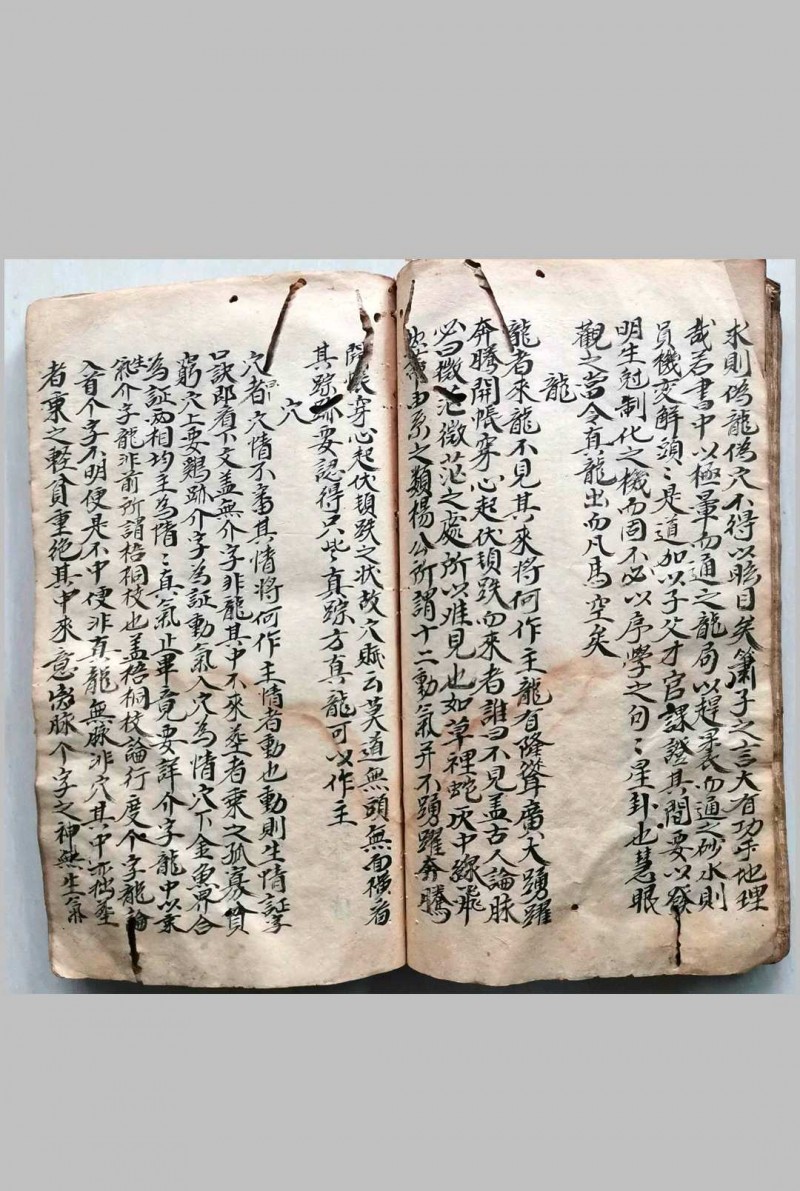 求則偽龍偽穴不得以眩目矣簫子之言大有功乎地理
哉若書中以極暈而通之龍局以趕裹而通之砂水則
員機変解頭〻是道加以子父才官課證其間要以發
明生尅制化之機而固不必以序學之句〻星卦也慧眼
觀之當令真龍出而凡馬空矣
龍
龍者來龍不見其來將何作主龍有隆聳廣大踴躍
奔騰開帳穿心起伏頓跌而來者誰曰不見盖古人論脉
必曰微茫微茫之處所以难見也如草裡蛇灰中線飛
由糸之類楊公所謂十二動氣并不踴躍奔騰
開帳穿心起伏頓跌之狀故穴賦云莫道無頭無面横看
其踪跡要認得只些真踪方真龍可以作主
穴
穴者穴情不審其情將何作主情者動也動則生情
口訣即看下文盖無介字非龍其中不來𦵏者乗之孤寡貧
窮穴上要鷄跡介字為証動氣入穴為情穴下金魚界合
為証两相均主為情〻真氣止畢竟要詳介字龍中以
氣介字龍非前所謂梧桐枝也盖梧桐枝論行度个字龍論
入首个字不明便是不中便非真龍無脉非穴其中亦拙𦵏
者乗之輕貧重绝其中來意脉个字之神無生氣